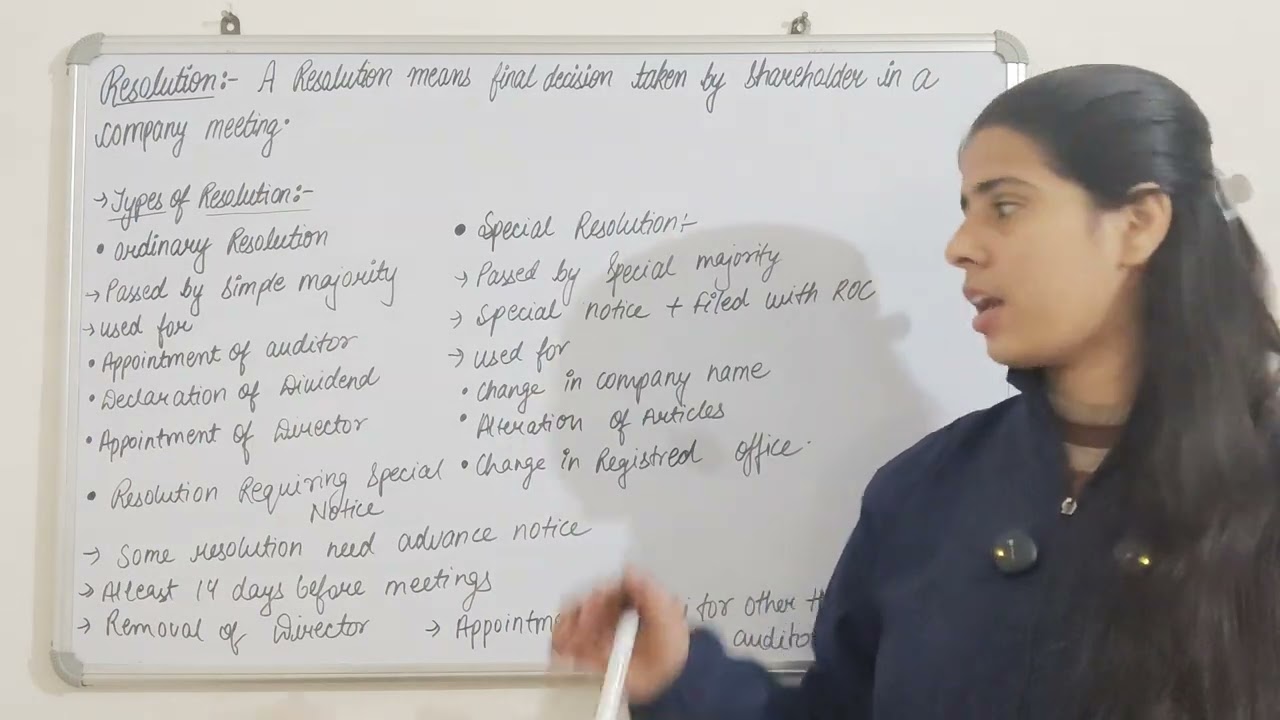 Resolution:- A Resolution means final decision taken by Shareholder in a
company meeting.
→ Types of Resolution:-
• ordinary Resolution
→ Passed by simple majority
→ used for
• Appointment of auditor
• Declaration of Dividend
• Appointment of Director
• Special Resolution:-
→ Passed by Special majority
→ Special notice + filed with ROC
→ used for
• Change in company name
• Alteration of Articles
• Change in Registred office.
• Resolution Requiring Special
Notice
→ Some resolution need advance notice
→ Atleast 14 days before meetings
→ Removal of Director → for other
auditor